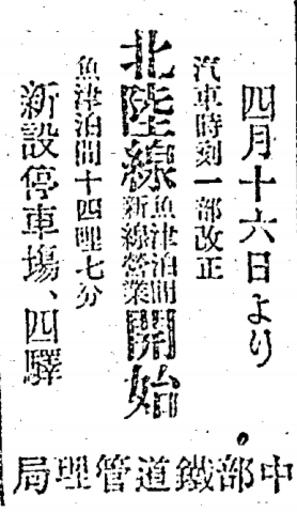 四月十六日より
汽車時刻一部改正
北陸線魚津泊間新線營業開始
魚津泊間十四哩七分
新設停車場、四驛
局理管道鐵部中